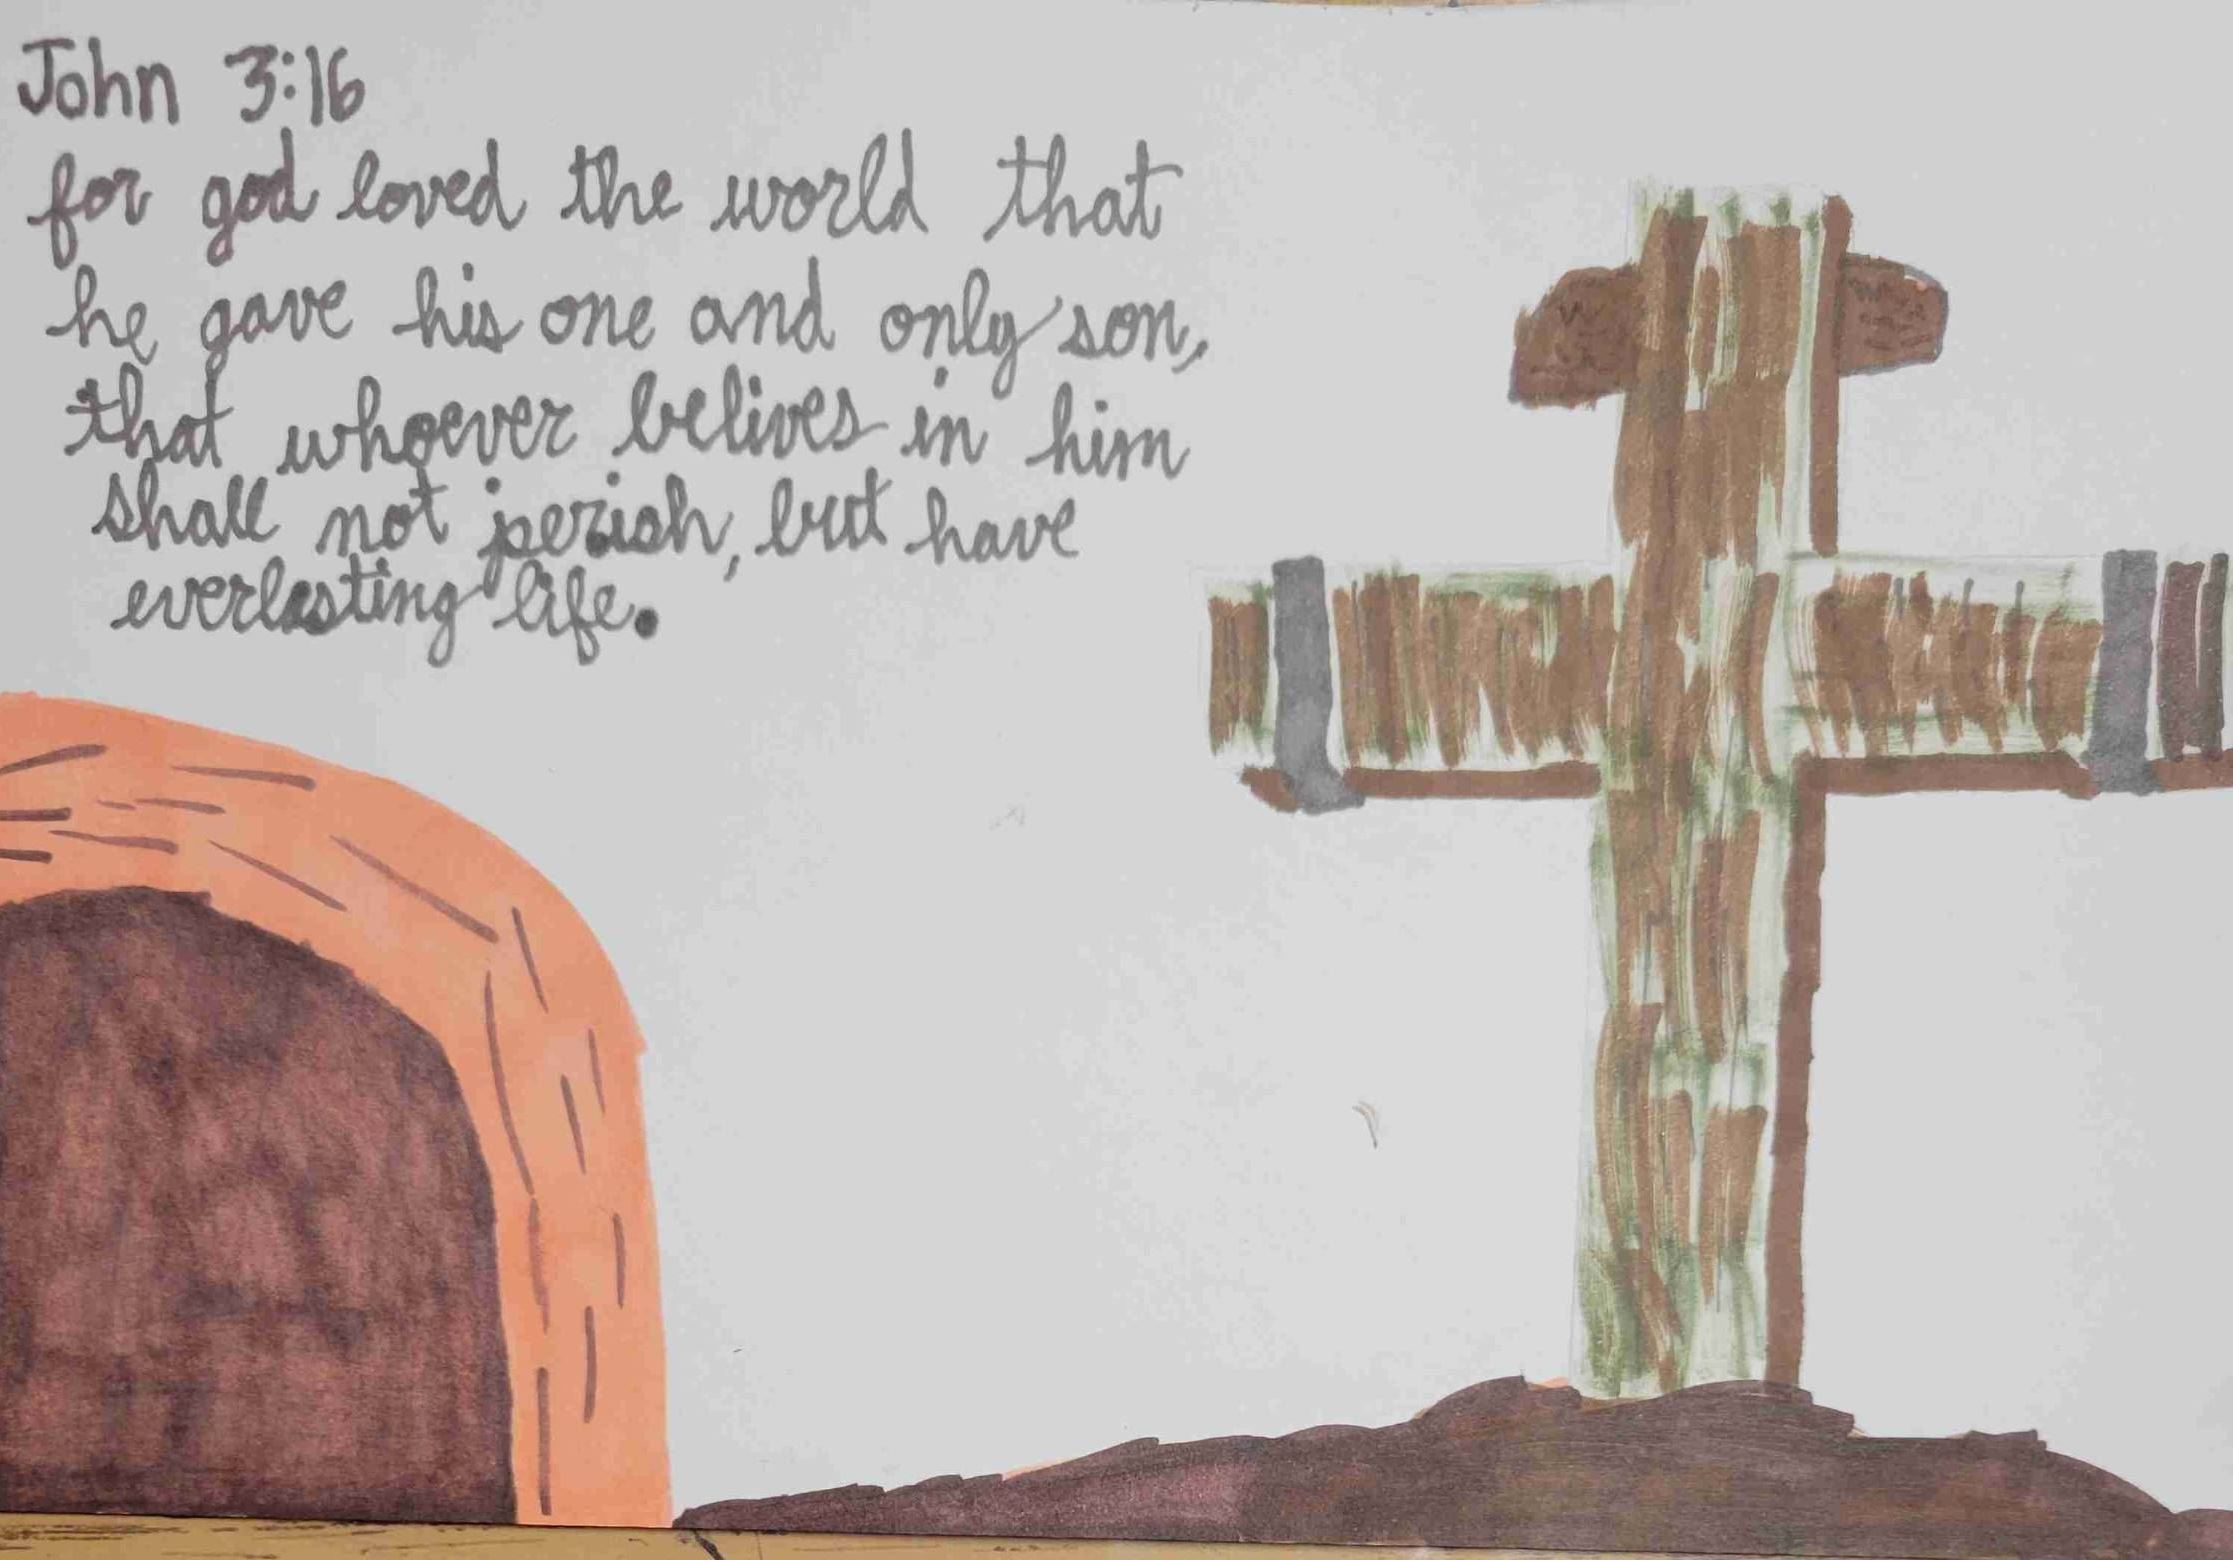 John 3:16
for god loved the world that
he gave his one and only son,
that whoever belives in him
shall not perish, but have
everlasting life.